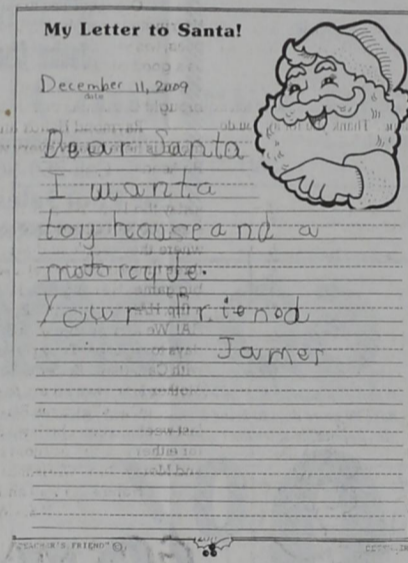 My Letter to Santa!
December 11, 2009
date
Dear Santa
I want a
toy house and a
motorcycle.
Your Frienod
James
TEACHER'S FRIEND